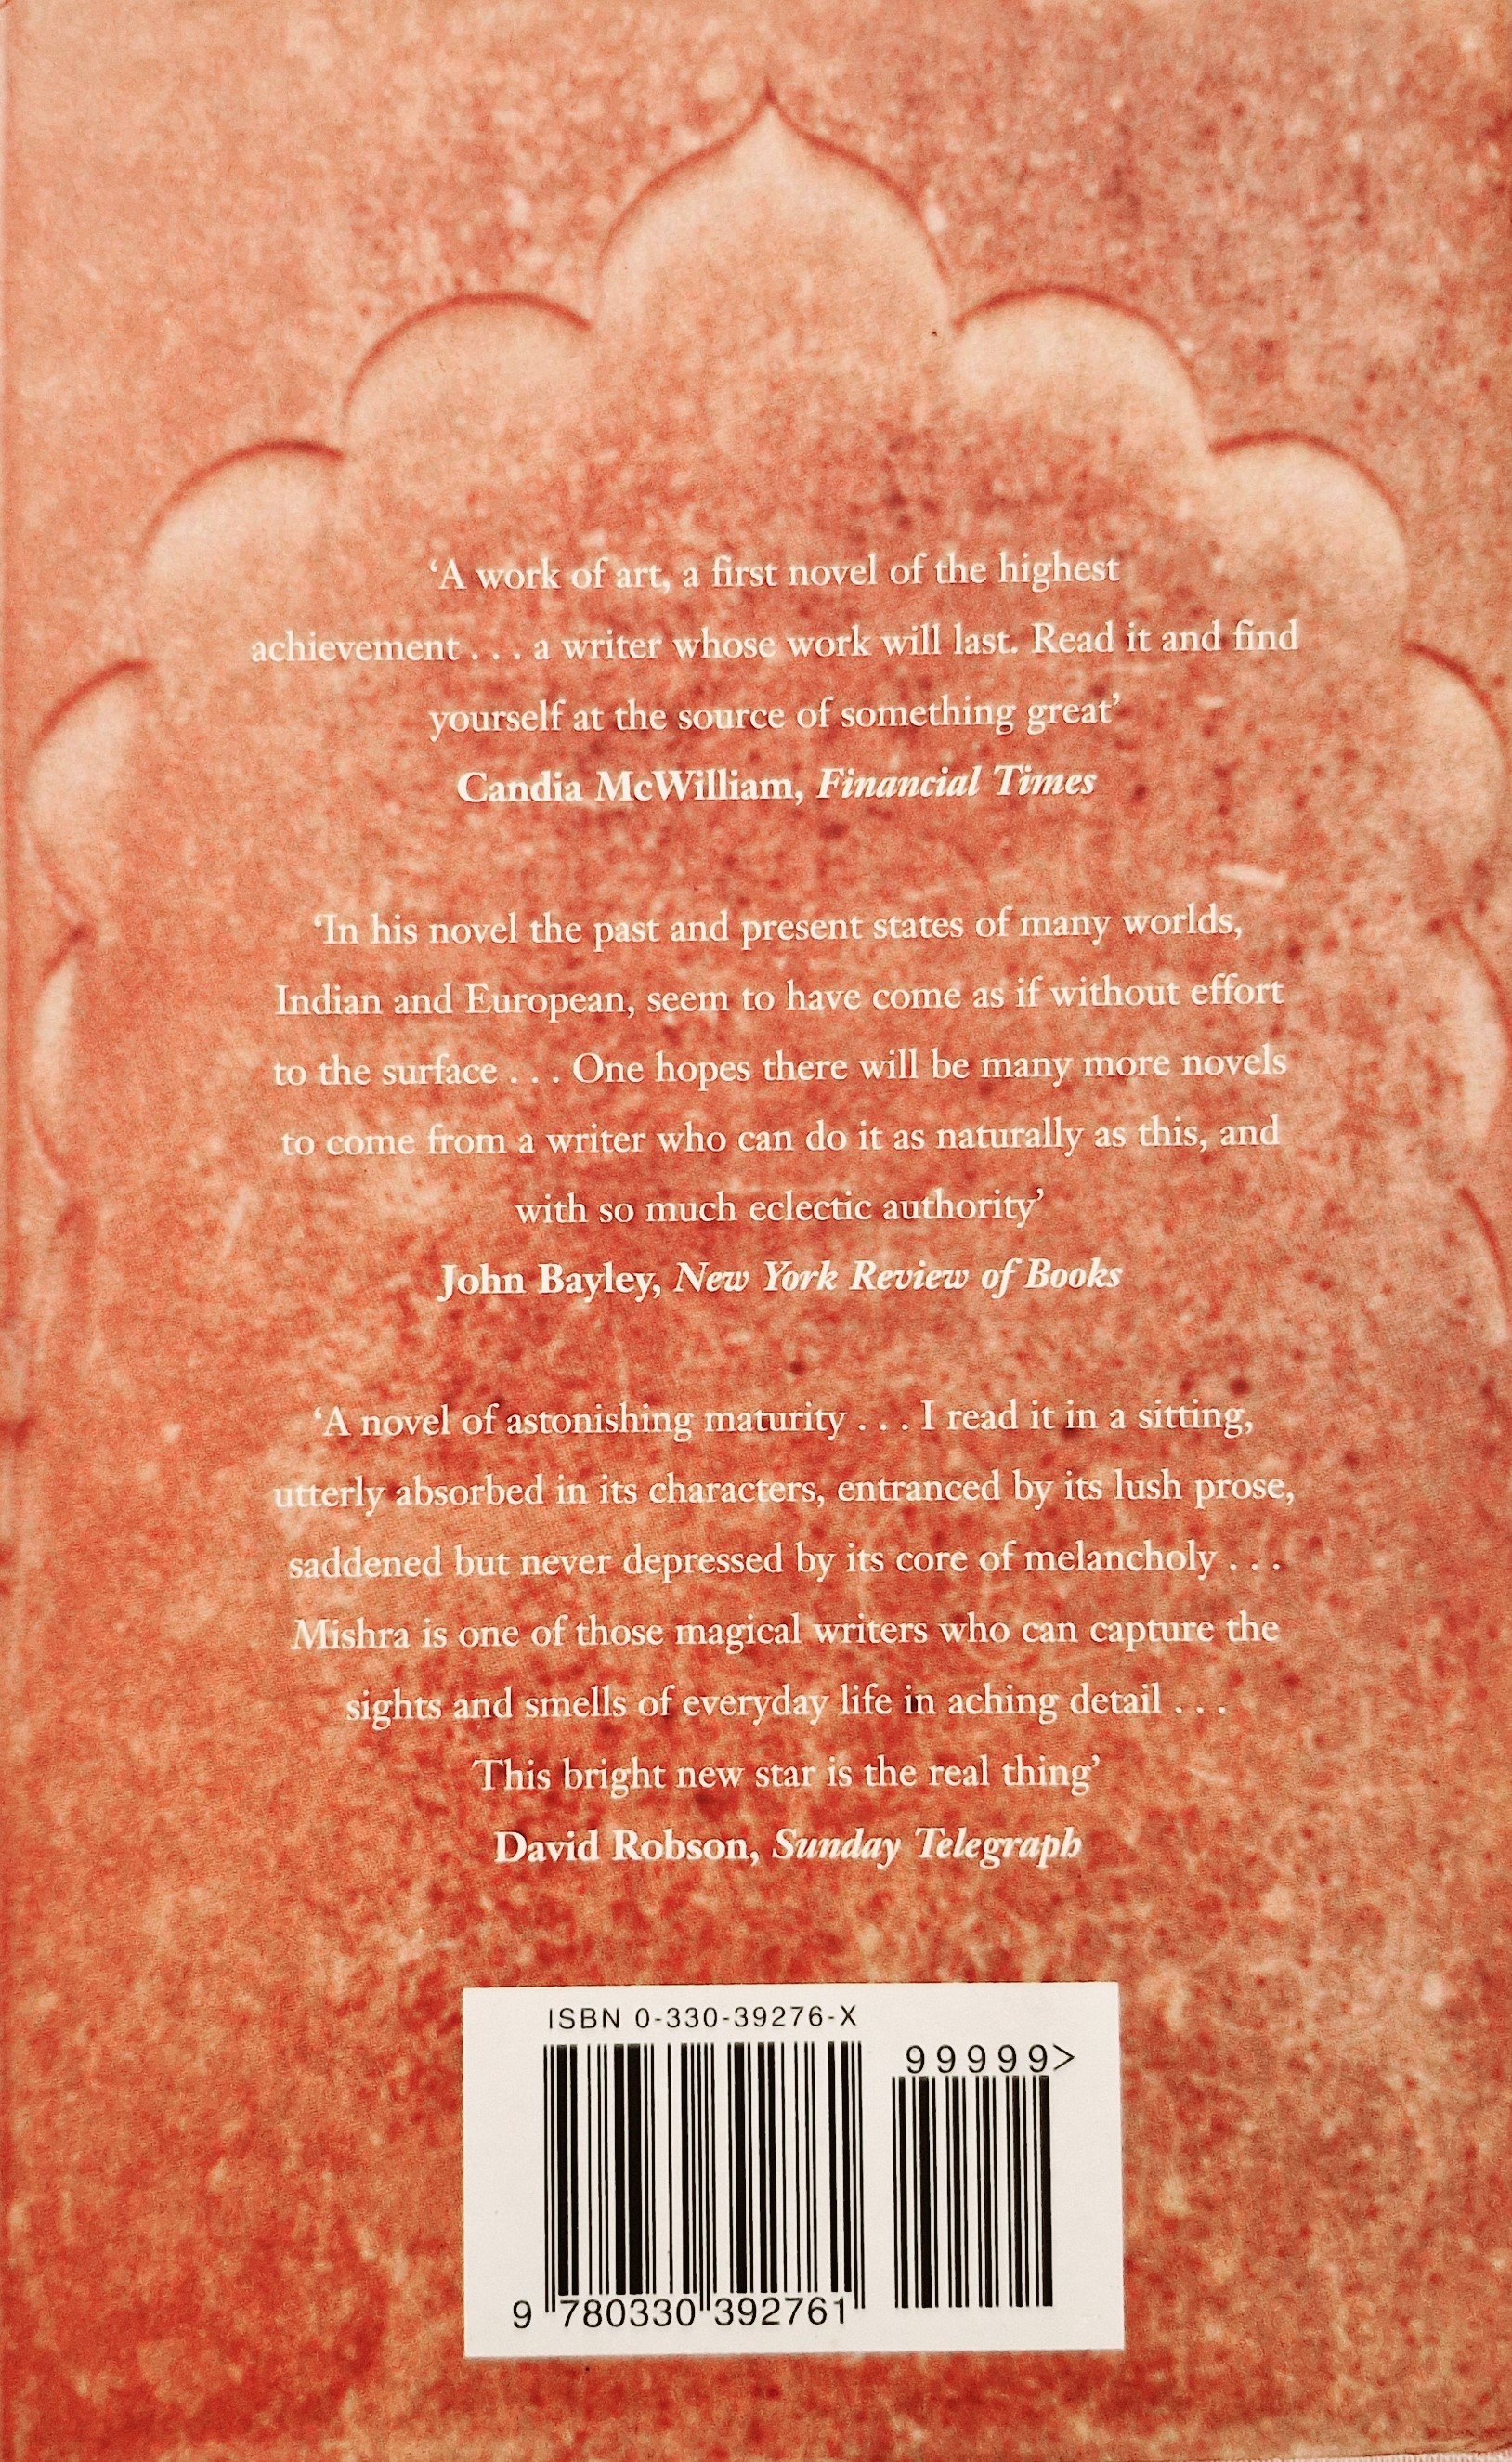 ‘A work of art, a first novel of the highest
achievement . . . a writer whose work will last. Read it and find
yourself at the source of something great’
Candia McWilliam, Financial Times
‘In his novel the past and present states of many worlds,
Indian and European, seem to have come as if without effort
to the surface . . . One hopes there will be many more novels
to come from a writer who can do it as naturally as this, and
with so much eclectic authority’
John Bayley, New York Review of Books
‘A novel of astonishing maturity . . . I read it in a sitting,
utterly absorbed in its characters, entranced by its lush prose,
saddened but never depressed by its core of melancholy . . .
Mishra is one of those magical writers who can capture the
sights and smells of everyday life in aching detail . . .
This bright new star is the real thing’
David Robson, Sunday Telegraph
ISBN 0-330-39276-X
99999>
9 780330 392761